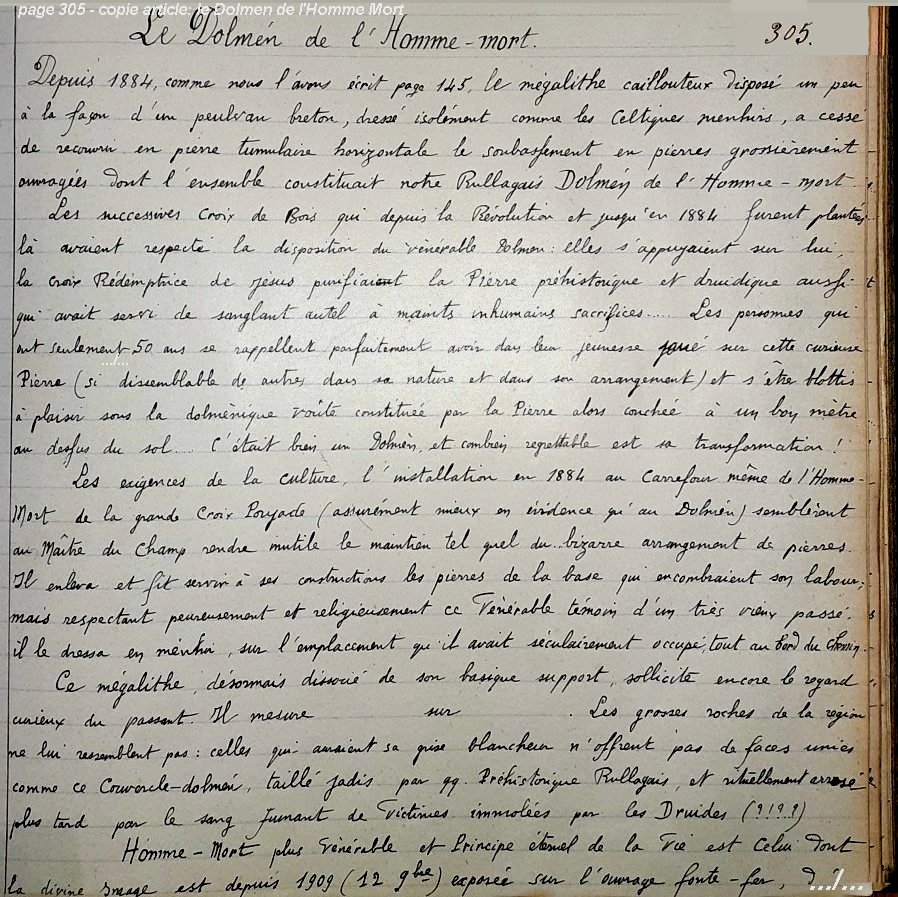 page 305 - copie article: le Dolmen de l'Homme Mort
Le Dolmén de l'Homme-mort. 305.
Depuis 1884, comme nous l'avons écrit page 145, le mégalithe caillouteux disposé un peu
à la façon d'un peulvan breton, dressé isolément comme les Celtiques menhirs, a cessé
de recouvrir en pierre tumulaire horizontale le soubassement en pierres grossièrement
ouvragées dont l'ensemble constituait notre Rullagais Dolmén de l'Homme-mort.
Les successives Croix de Bois qui depuis la Révolution et jusqu'en 1884 furent plantées
là avaient respecté la disposition du vénérable Dolmen: elles s'appuyaient sur lui,
la croix Rédemptrice de Jésus purifiaient la Pierre préhistorique et druidique aussi
qui avait servi de sanglant autel à maints inhumains sacrifices.... Les personnes qui
ont seulement 50 ans se rappellent parfaitement avoir dans leur jeunesse joué sur cette curieuse
Pierre (si dissemblable de autres dans sa nature et dans son arrangement) et s'être blottis
à plaisir sous la dolménique voûte constituée par la Pierre alors couchée à un bon mètre
au dessus du sol... C'était bien un Dolmén, et combien regrettable est sa transformation!
Les exigences de la culture, l'installation en 1884 au Carrefour même de l'Homme-
Mort de la grande Croix Poujade (assurément mieux en évidence qu'au Dolmén) semblèrent
au Maître du Champ rendre inutile le maintien tel quel du bizarre arrangement de pierres.
Il enleva et fit servir à ses constructions les pierres de la base qui encombraient son labour;
mais respectant peureusement et religieusement ce Vénérable témoin d'un très vieux passé,
il le dressa en ménhir, sur l'emplacement qu'il avait séculairement occupé, tout au bord du Chemin.
Ce mégalithe, désormais dissocié de son basique support, sollicite encore le regard
curieux du passant. Il mesure sur . Les grosses roches de la région
ne lui ressemblent pas: celles qui auraient sa grise blancheur n'offrent pas de faces unies
comme ce Couvercle-dolmén, taillé jadis par qq. Préhistorique Rullagais, et rituellement arrosé
plus tard par le sang fumant de Victimes immolées par les Druides (?!?!)
Homme-Mort plus Vénérable et Principe éternel de la Vie est Celui dont
la divine Image est depuis 1909 (12 9bre) exposée sur l'ouvrage fonte-fer,
.../...